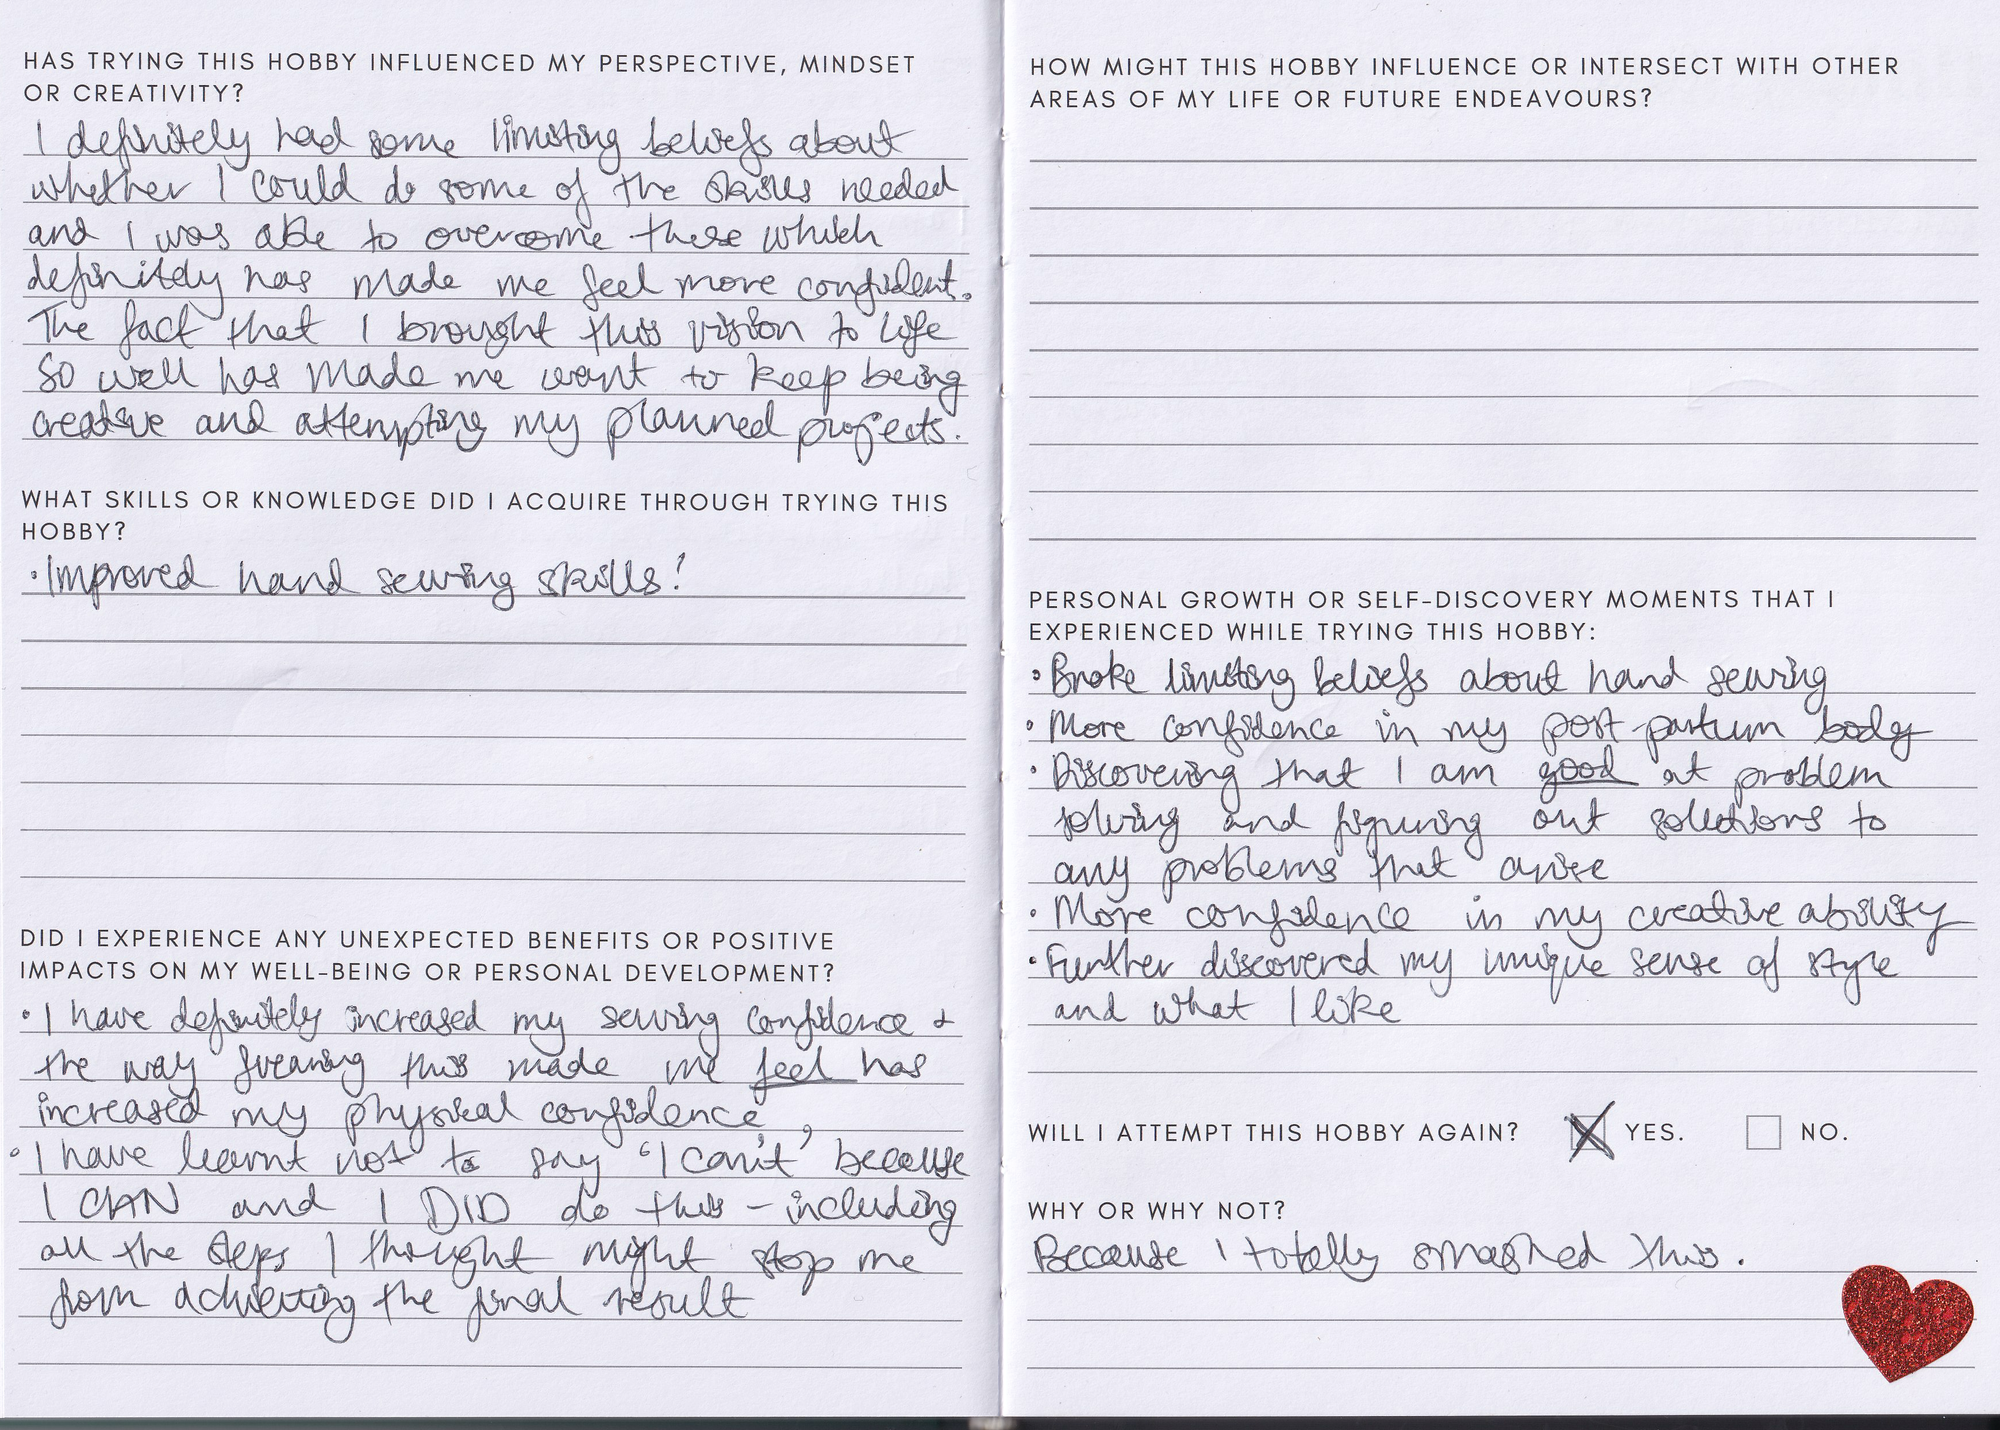 HAS TRYING THIS HOBBY INFLUENCED MY PERSPECTIVE, MINDSET
OR CREATIVITY?
I definitely had some limiting beliefs about
whether I could do some of the skills needed
and I was able to overcome these which
definitely has made me feel more confident.
The fact that I brought this vision to life
so well has made me want to keep being
creative and attempting my planned projects.
WHAT SKILLS OR KNOWLEDGE DID I ACQUIRE THROUGH TRYING THIS
HOBBY?
• Improved hand sewing skills!
DID I EXPERIENCE ANY UNEXPECTED BENEFITS OR POSITIVE
IMPACTS ON MY WELL-BEING OR PERSONAL DEVELOPMENT?
• I have definitely increased my sewing confidence +
the way wearing this made me feel has
increased my physical confidence
• I have learnt not to say "I can't" because
I CAN and I DID do this - including
all the steps I thought might stop me
from achieving the final result
HOW MIGHT THIS HOBBY INFLUENCE OR INTERSECT WITH OTHER
AREAS OF MY LIFE OR FUTURE ENDEAVOURS?
PERSONAL GROWTH OR SELF-DISCOVERY MOMENTS THAT I
EXPERIENCED WHILE TRYING THIS HOBBY:
• Broke limiting beliefs about hand sewing
• More confidence in my post-partum body
• Discovering that I am good at problem
solving and figuring out solutions to
any problems that arise
• More confidence in my creative ability
• Further discovered my unique sense of style
and what I like
WILL I ATTEMPT THIS HOBBY AGAIN? YES. NO.
WHY OR WHY NOT?
Because I totally smashed this.